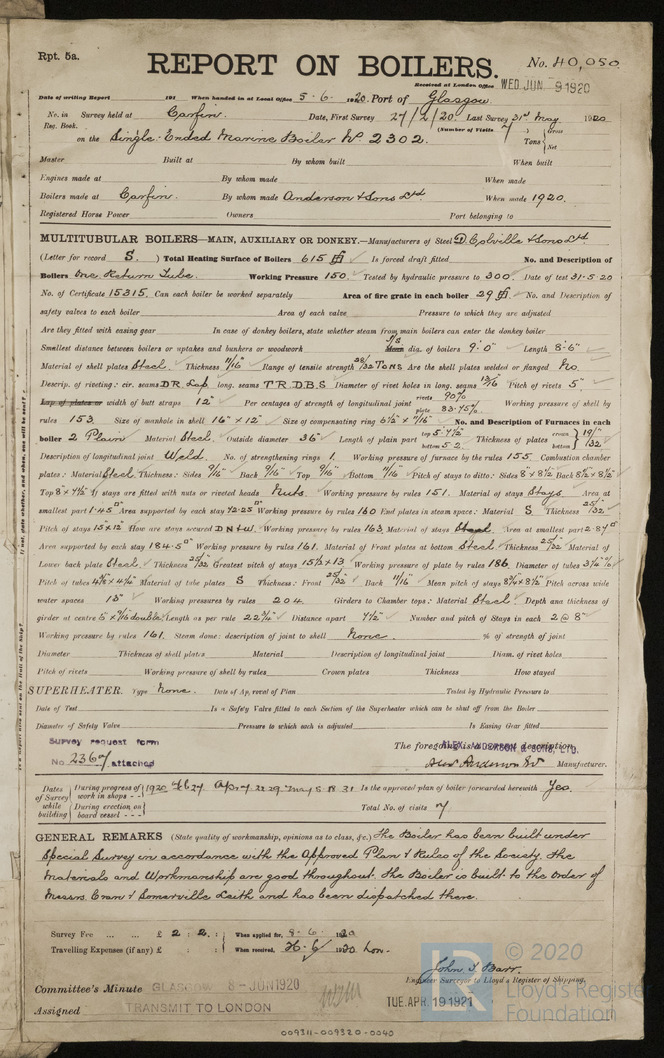 Rpt. 5a.
REPORT ON BOILERS.
No. 40,050.
Received at London Office WED JUN 9 1920
Date of writing Report 191 When handed in at Local Office 5.6.1920. Port of Glasgow.
No. in Survey held at Carfin. Date, First Survey 27/2/20. Last Survey 31st May 1920
Reg. Book.
(Number of Visits 7)
on the Single-Ended Marine Boiler No. 2302. Tons { Gross Net
Master Built at By whom built When built
Engines made at By whom made When made
Boilers made at Carfin. By whom made Anderson & Sons Ltd When made 1920.
Registered Horse Power Owners Port belonging to
MULTITUBULAR BOILERS—MAIN, AUXILIARY OR DONKEY.—Manufacturers of Steel D. Colville & Sons Ltd.
(Letter for record S.) Total Heating Surface of Boilers 615 Is forced draft fitted No. and Description of
Boilers One Return Tube. Working Pressure 150. Tested by hydraulic pressure to 300. Date of test 31.5.20
No. of Certificate 15315. Can each boiler be worked separately Area of fire grate in each boiler 29 No. and Description of
safety valves to each boiler Area of each valve Pressure to which they are adjusted
Are they fitted with easing gear In case of donkey boilers, state whether steam from main boilers can enter the donkey boiler
Smallest distance between boilers or uptakes and bunkers or woodwork Mean dia. of boilers 9'.0" Length 8'-6"
Material of shell plates Steel Thickness 11/16" Range of tensile strength 28/32 Tons Are the shell plates welded or flanged No.
Descrip. of riveting: cir. seams D.R. Lap long. seams T.R.D.B.S Diameter of rivet holes in long. seams 13/16" Pitch of rivets 5"
Lap of plates or width of butt straps 12" Per centages of strength of longitudinal joint rivets 90% plate 83.75% Working pressure of shell by
rules 153. Size of manhole in shell 16" x 12" Size of compensating ring 6½" x 11/16" No. and Description of Furnaces in each
boiler 2 Plain Material Steel. Outside diameter 36" Length of plain part top 5-7½ bottom 5-2 Thickness of plates crown bottom } 19/32"
Description of longitudinal joint Weld. No. of strengthening rings 1. Working pressure of furnace by the rules 155 Combustion chamber
plates: Material Steel Thickness: Sides 9/16" Back 9/16" Top 9/16" Bottom 11/16" Pitch of stays to ditto: Sides 8" x 8½" Back 8½" x 8½"
Top 8" x 7½" If stays are fitted with nuts or riveted heads Nuts. Working pressure by rules 151. Material of stays Stays Area at
smallest part 1.45 Area supported by each stay 72.25 Working pressure by rules 160 End plates in steam space: Material S Thickness 25/32"
Pitch of stays 15" x 12" How are stays secured D N & W. Working pressure by rules 163 Material of stays Steel Area at smallest part 2.87
Area supported by each stay 184.5 Working pressure by rules 161. Material of Front plates at bottom Steel Thickness 25/32" Material of
Lower back plate Steel Thickness 25/32" Greatest pitch of stays 15½ x 13" Working pressure of plate by rules 186 Diameter of tubes 3¼"
Pitch of tubes 4⅜" x 4¼" Material of tube plates S Thickness: Front 25/32" Back 11/16" Mean pitch of stays 8¾" x 8½" Pitch across wide
water spaces 13" Working pressures by rules 204. Girders to Chamber tops: Material Steel. Depth and thickness of
girder at centre 5" x 7/16" double Length as per rule 22¾" Distance apart 7½" Number and pitch of Stays in each 2 @ 8"
Working pressure by rules 161. Steam dome: description of joint to shell None. % of strength of joint
Diameter Thickness of shell plates Material Description of longitudinal joint Diam. of rivet holes
Pitch of rivets Working pressure of shell by rules Crown plates Thickness How stayed
SUPERHEATER. Type None. Date of Approval of Plan Tested by Hydraulic Pressure to
Date of Test Is a Safety Valve fitted to each Section of the Superheater which can be shut off from the Boiler
Diameter of Safety Valve Pressure to which each is adjusted Is Easing Gear fitted
Survey request form
No. 2367 attached
The foregoing is a correct description,
ALEX. ANDERSON & SONS, LTD.
Manufacturer.
Dates of Survey while building
During progress of work in shops - - 1920 Feb 27 Apr 7. 22. 29. May 5. 18. 31 Is the approved plan of boiler forwarded herewith Yes.
During erection on board vessel - - - Total No. of visits 7
GENERAL REMARKS (State quality of workmanship, opinions as to class, &c.) The Boiler has been built under
Special Survey in accordance with the Approved Plan & Rules of the Society. The
Materials and Workmanship are good throughout. The Boiler is built to the order of
Messrs. Cran & Somerville Leith and has been dispatched there.
Survey Fee ... ... £ 2 : 2 : When applied for, 8.6.1920
Travelling Expenses (if any) £ : : When received, 1920
John S. Barr.
Engineer Surveyor to Lloyd's Register of Shipping,
Committee's Minute GLASGOW 8 - JUN 1920
TUE. APR. 19 1921
Assigned TRANSMIT TO LONDON
© 2020
Lloyd's Register
Foundation
009311-009320-0040